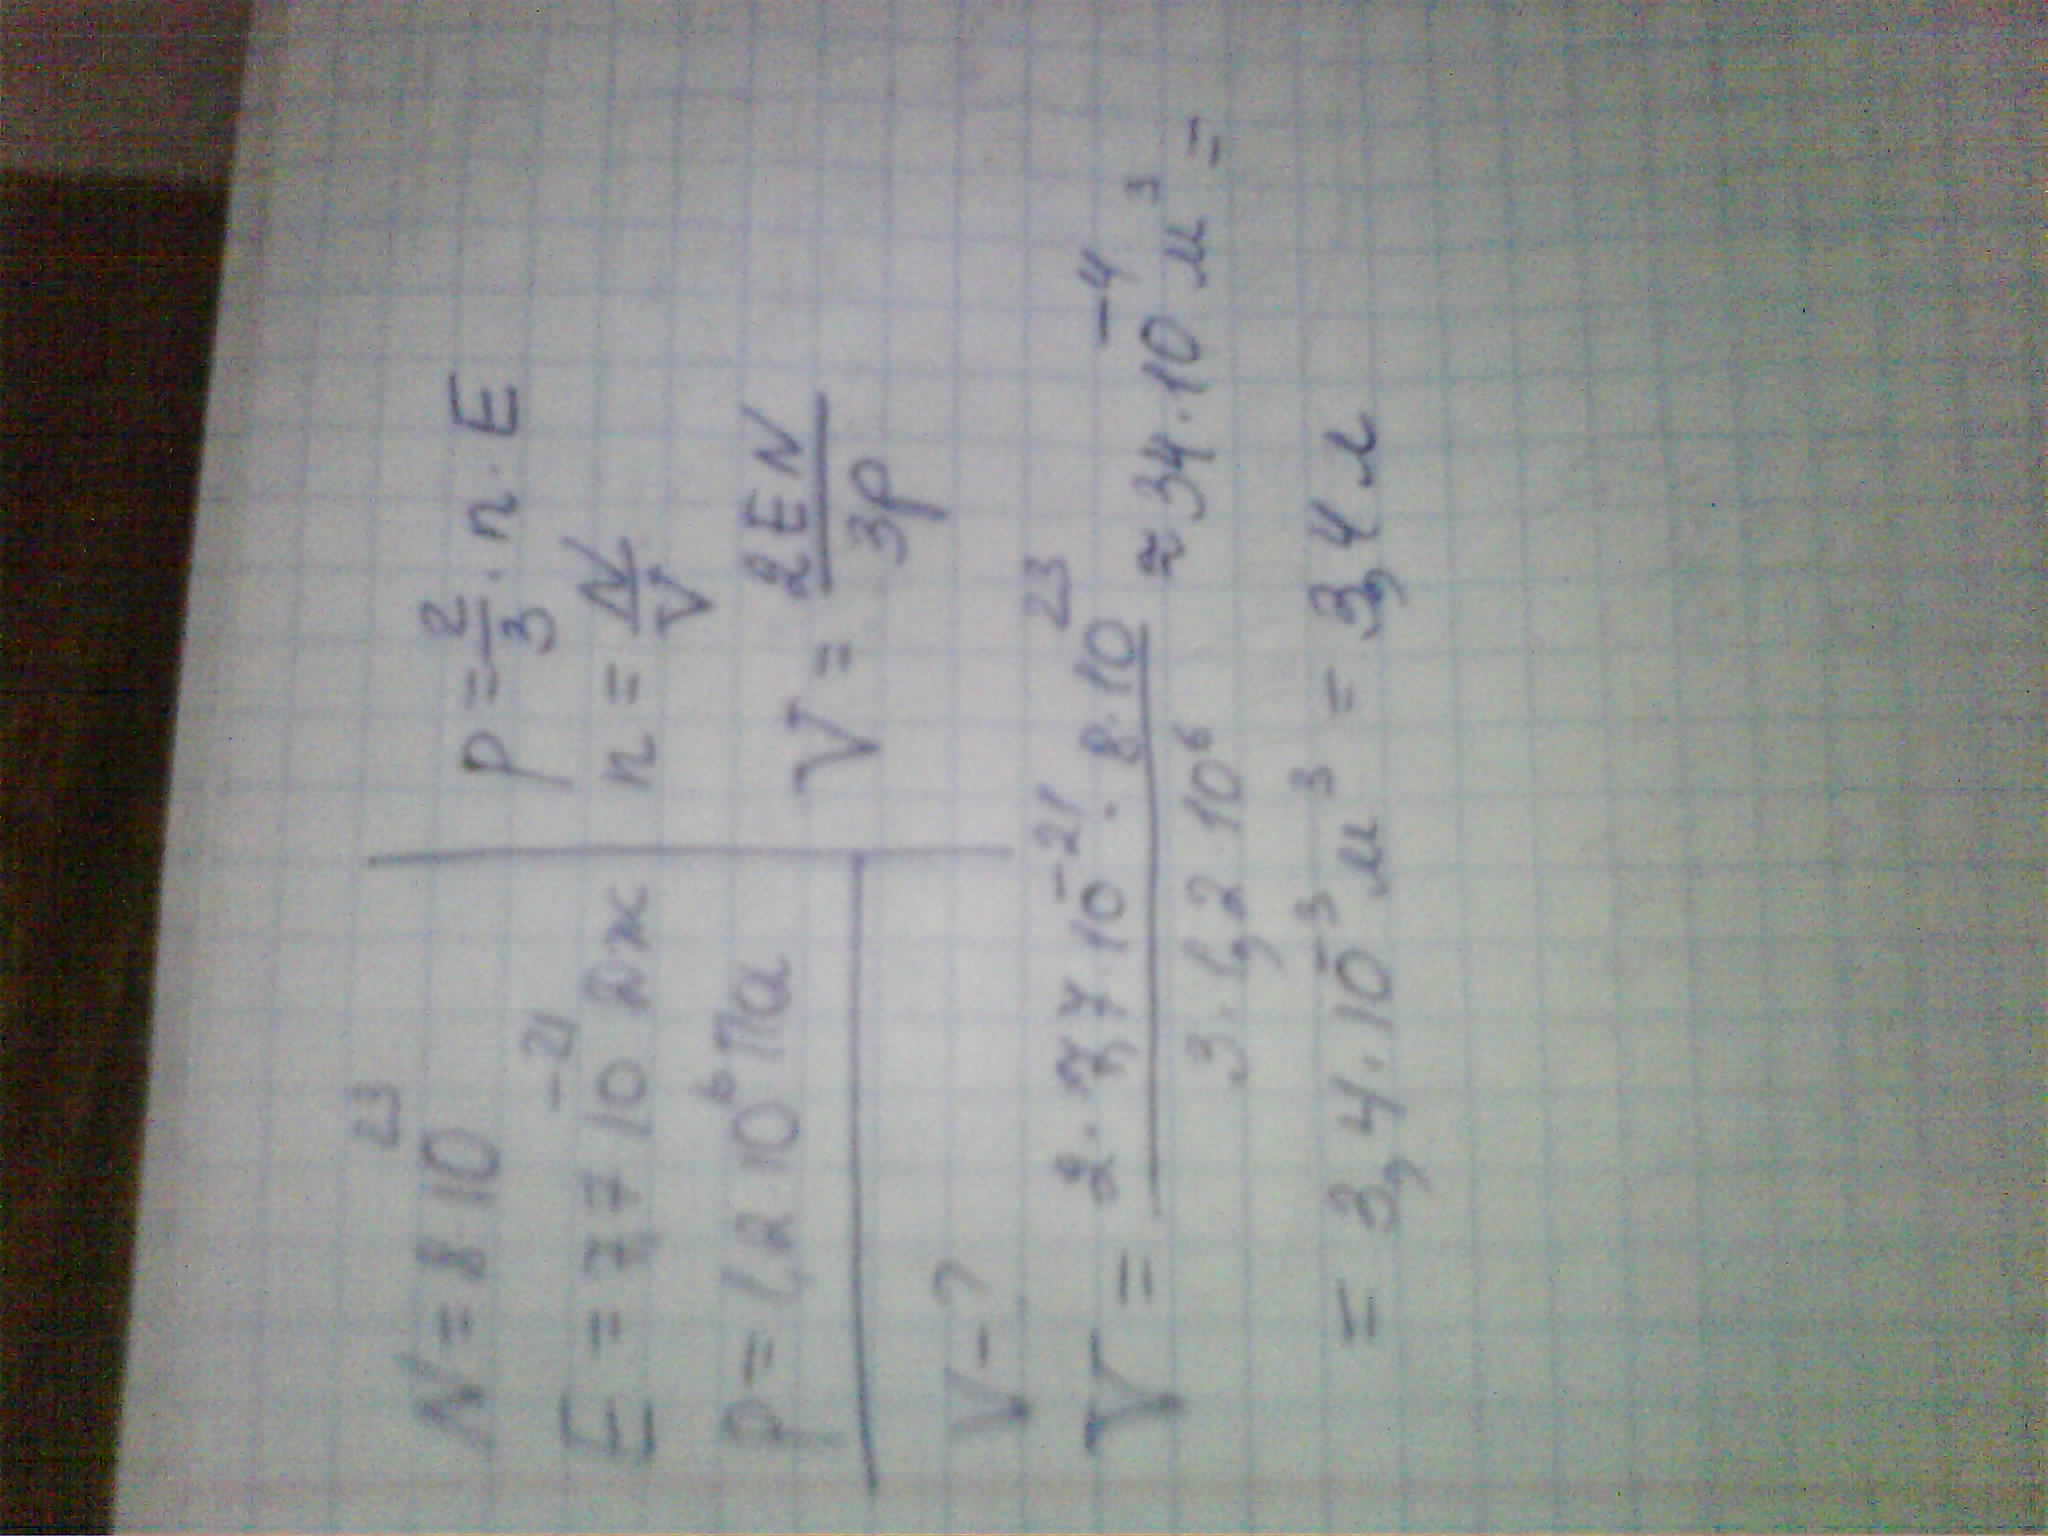 N = 8 10²³
E = 7,7 10⁻²¹ Дж
p = 1,2 10⁶ Па
V - ?
p = 2/3 · n · E
n = N/V
V = 2EN/3p
V = 2 · 7,7 10⁻²¹ · 8 · 10²³ / 3 · 1,2 10⁶ ≈ 34 · 10⁻⁴ м³ =
= 3,4 · 10⁻³ м³ = 3,4 л